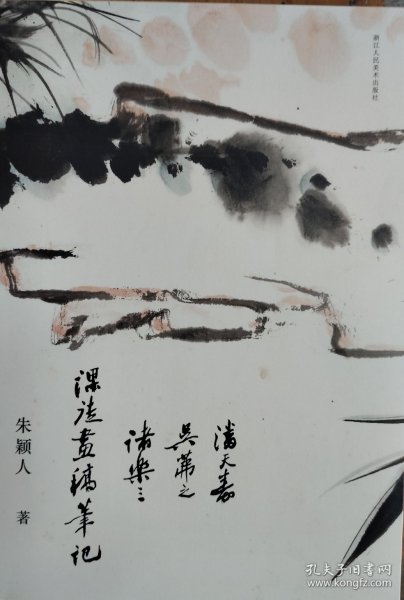 浙江人民美术出版社
潘天寿
吴茀之
诸乐三
课徒画稿笔记
朱颖人 著
孔夫子旧书网
www.kongfz.com